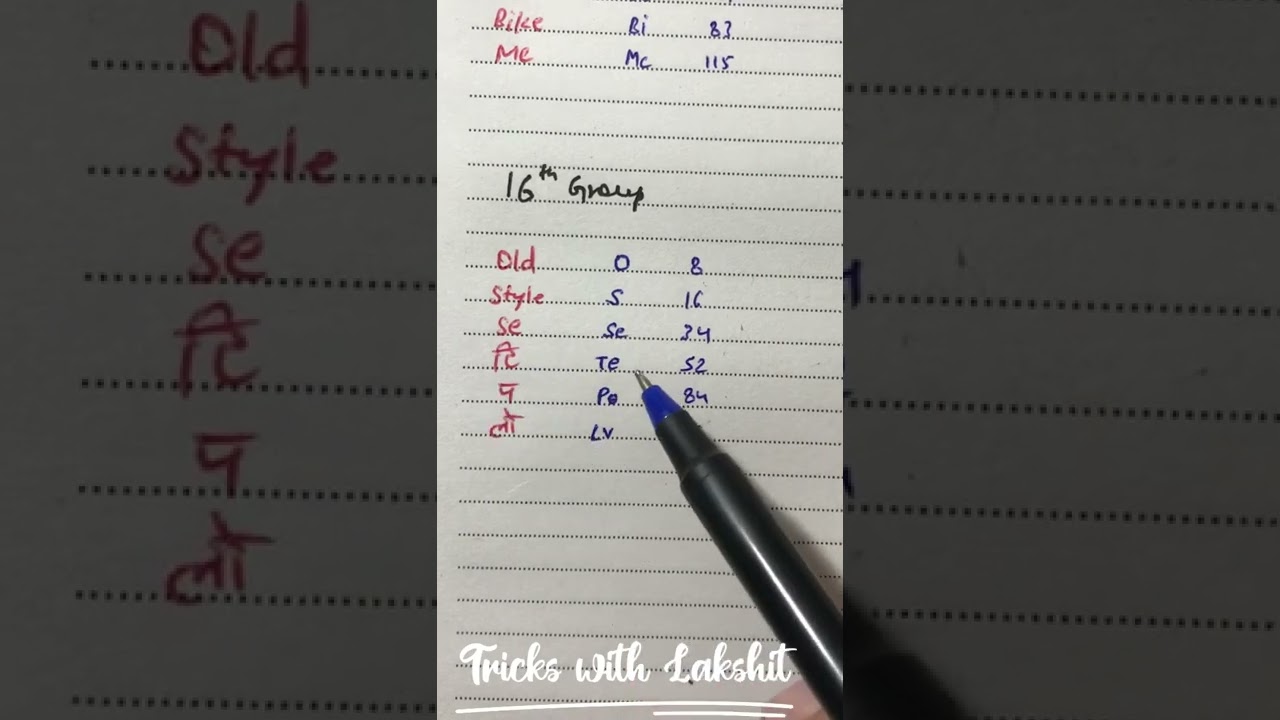 Bike Bi 83
Me Mc 115
16th Group
Old O 8
Style S 16
Se Se 34
टि Te 52
प Po 84
लो Lv
Tricks with Lakshit
Old
Style
Se
टि
प
लो